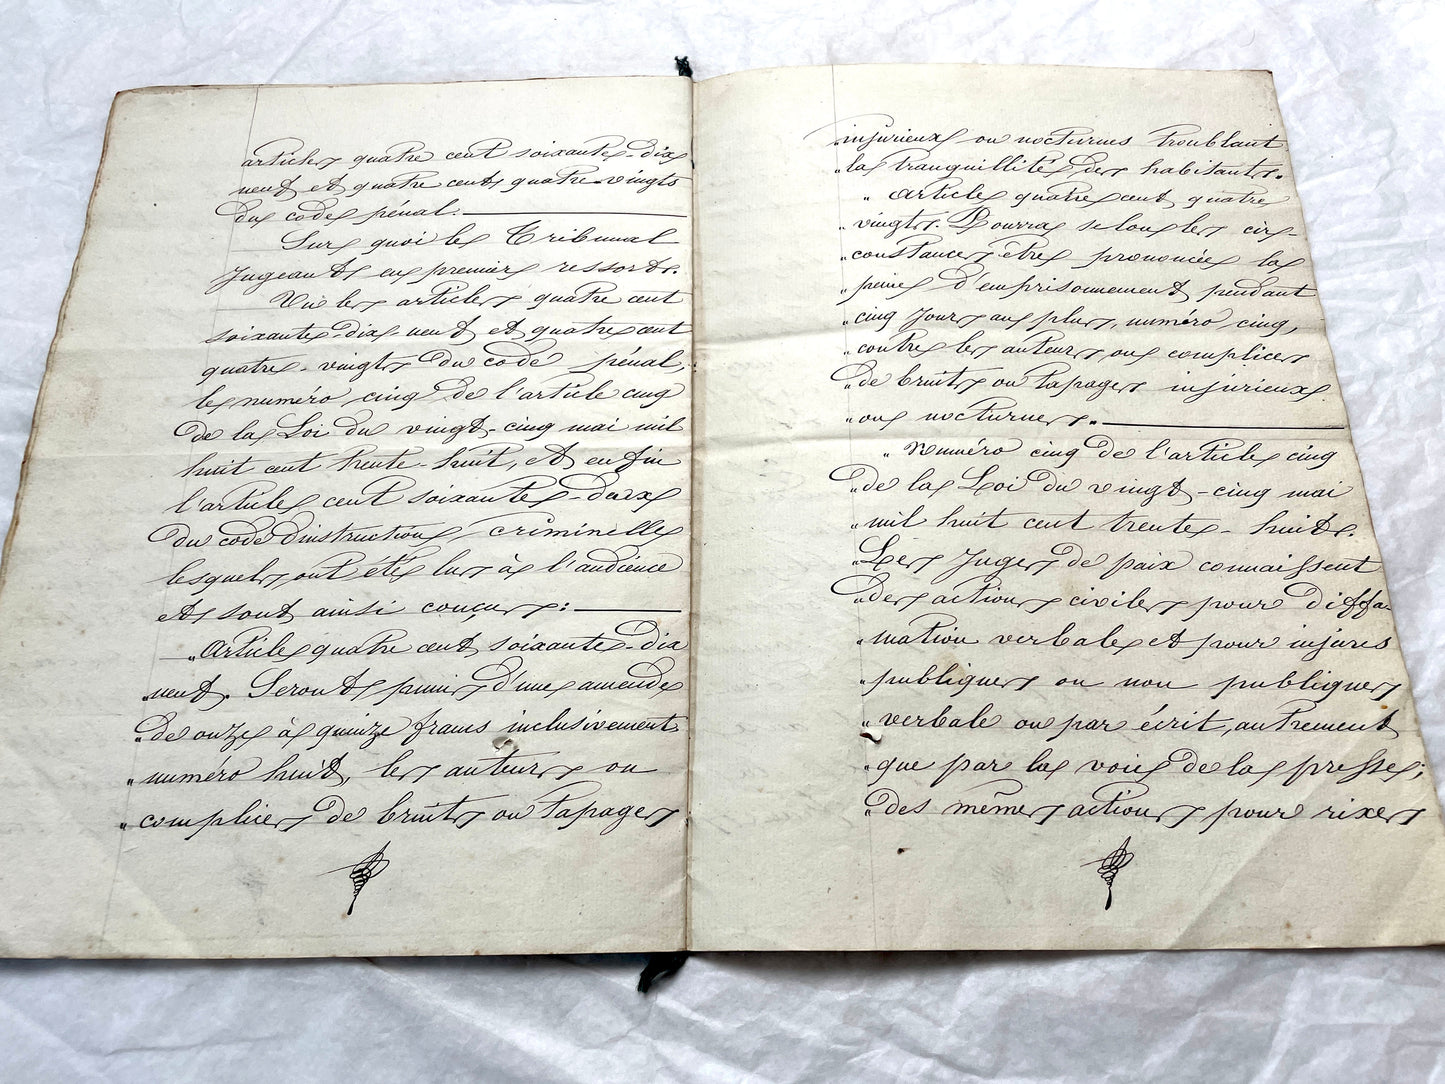 articles quatre cent soixante-dix
neuf et quatre cent quatre-vingts
du code pénal.
Sur quoi le Tribunal
Jugeant en premier ressort.
Vu les articles quatre cent
soixante-dix-neuf et quatre cent
quatre-vingts du code pénal,
le numéro cinq de l'article cinq
de la Loi du vingt-cinq mai mil
huit cent trente-huit, et enfin
l'article cent soixante-deux
du code d'instruction criminelle
lesquels ont été lus à l'audience
et sont ainsi conçus:
„Article quatre cent soixante-dix
„neuf. Seront punis d'une amende
„de onze à quinze francs inclusivement.
„numéro huit, les auteurs ou
„complices de bruits ou tapages
„injurieux ou nocturnes troublant
„la tranquillité des habitants.
„Article quatre cent quatre
„vingts. Pourra selon les cir-
„constances être prononcée la
„peine d'emprisonnement pendant
„cinq jours au plus, numéro cinq,
„contre les auteurs ou complices
„de bruits ou tapages injurieux
„ou nocturnes.
„Numéro cinq de l'article cinq
„de la Loi du vingt-cinq mai
„mil huit cent trente-huit.
„Les Juges de paix connaissent
„des actions civiles pour diffa-
„mation verbale et pour injures
„publiques ou non publiques
„verbale ou par écrit, autrement
„que par la voie de la presse;
„des mêmes actions pour rixes